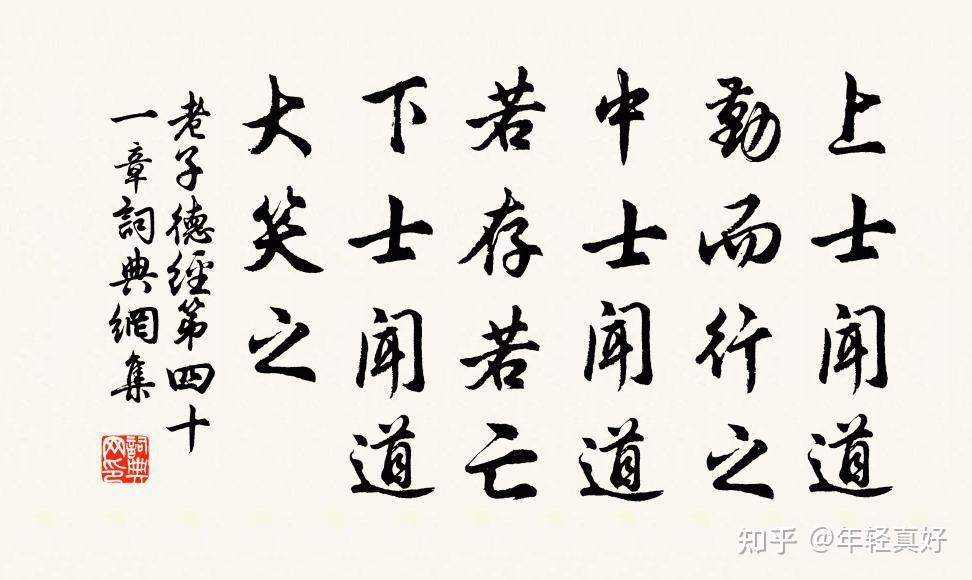 上士闻道
勤而行之
中士闻道
若存若亡
下士闻道
大笑之
老子德經第四十
一章詞典網集
詞典
网印
知乎 @年轻真好